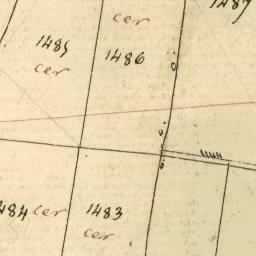 1487
cer
1485
cer
1486
484 cer
1483
cer